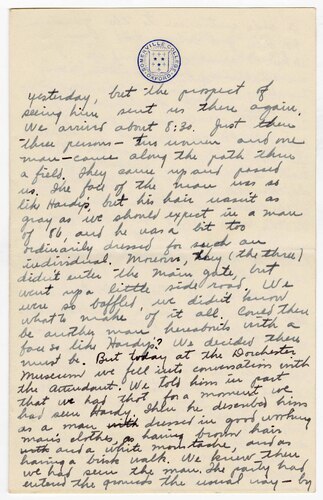 SOMERVILLE COLLEGE
OXFORD
yesterday, but the prospect of
seeing him sent us there again.
We arrived about 8:30. Just then
three persons – two women and one
man – came along the path thru
a field. They came up and passed
us. The face of the man was so
like Hardy's, but his hair wasn't as
gray as we should expect in a man
of 86, and he was a bit too
ordinarily dressed for such an
individual. Moreover, they (the three)
didn't enter the main gate, but
went up a little side road. We
were so baffled, we didn't know
what to make of it all. Could there
be another man hereabouts with a
face so like Hardy's? We decided there
must be. But today at the Dorchester
Museum we fell into conversation with
the attendant. We told him in part
that we had thot for a moment we
had seen Hardy. Then he described him
as a man dressed in good working
man's clothes, as having brown hair
and a white moustache, and as
having a brisk walk. We knew then
we had seen the man. The party had
entered the grounds the usual way – by